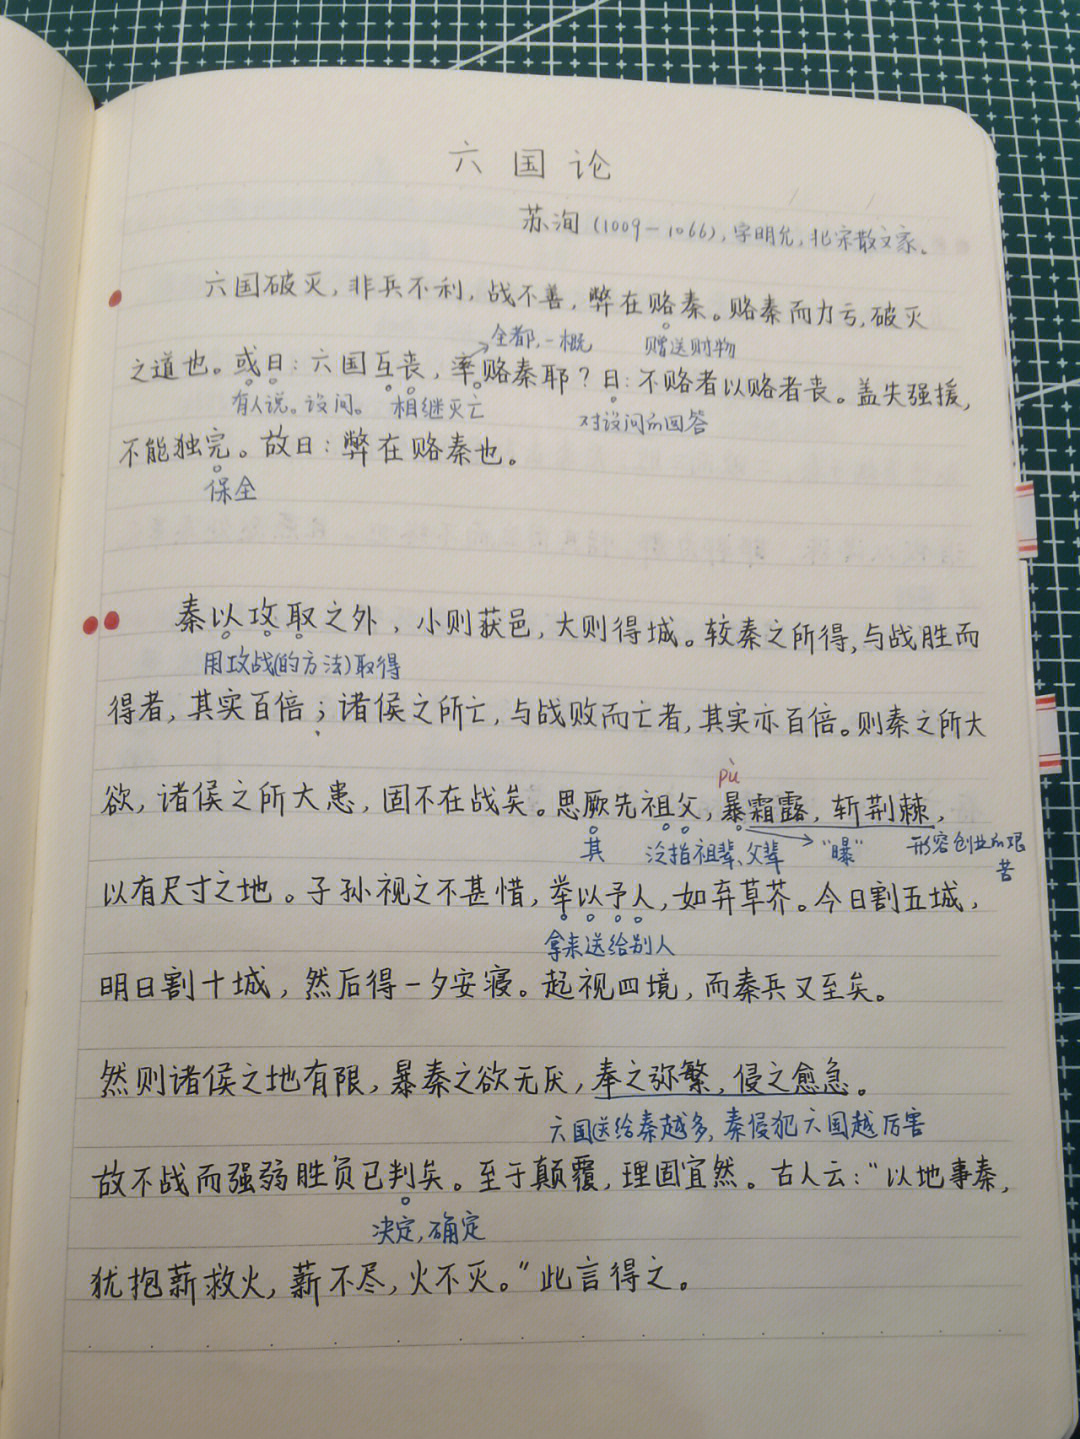 六国论
苏洵（1009－1066），字明允，北宋散文家。
六国破灭，非兵不利，战不善，弊在赂秦。赂秦而力亏，破灭
全都，一概 赠送财物
之道也。或曰：六国互丧，率赂秦耶？曰：不赂者以赂者丧。盖失强援，
有人说。设问。 相继灭亡 对设问的回答
不能独完。故曰：弊在赂秦也。
保全
秦以攻取之外，小则获邑，大则得城。较秦之所得，与战胜而
用攻战(的方法)取得
得者，其实百倍；诸侯之所亡，与战败而亡者，其实亦百倍。则秦之所大
pù
欲，诸侯之所大患，固不在战矣。思厥先祖父，暴霜露，斩荆棘，
其 泛指祖辈、父辈 “曝” 形容创业的艰苦
以有尺寸之地。子孙视之不甚惜，举以予人，如弃草芥。今日割五城，
拿来送给别人
明日割十城，然后得一夕安寝。起视四境，而秦兵又至矣。
然则诸侯之地有限，暴秦之欲无厌，奉之弥繁，侵之愈急。
六国送给秦越多，秦侵犯六国越厉害
故不战而强弱胜负已判矣。至于颠覆，理固宜然。古人云：“以地事秦，
决定，确定
犹抱薪救火，薪不尽，火不灭。”此言得之。